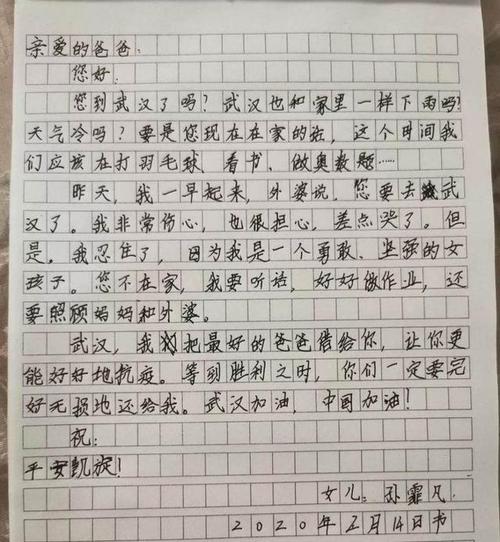 亲爱的爸爸：
您好：
您到武汉了吗？武汉也和家里一样下雨吗？
天气冷吗？要是您现在在家的话，这个时间我
们应该在打羽毛球、看书、做奥数题……
昨天，我一早起来，外婆说，您要去武
汉了。我非常伤心，也很担心，差点哭了。但
是，我忍住了，因为我是一个勇敢、坚强的女
孩子。您不在家，我要听话，好好做作业，还
要照顾妈妈和外婆。
武汉，我把最好的爸爸借给你，让你更
能好好地抗疫。等到胜利之时，你们一定要完
好无损地还给我。武汉加油，中国加油！
祝：
平安凯旋！
女儿：孙霏凡
2020年2月14日书